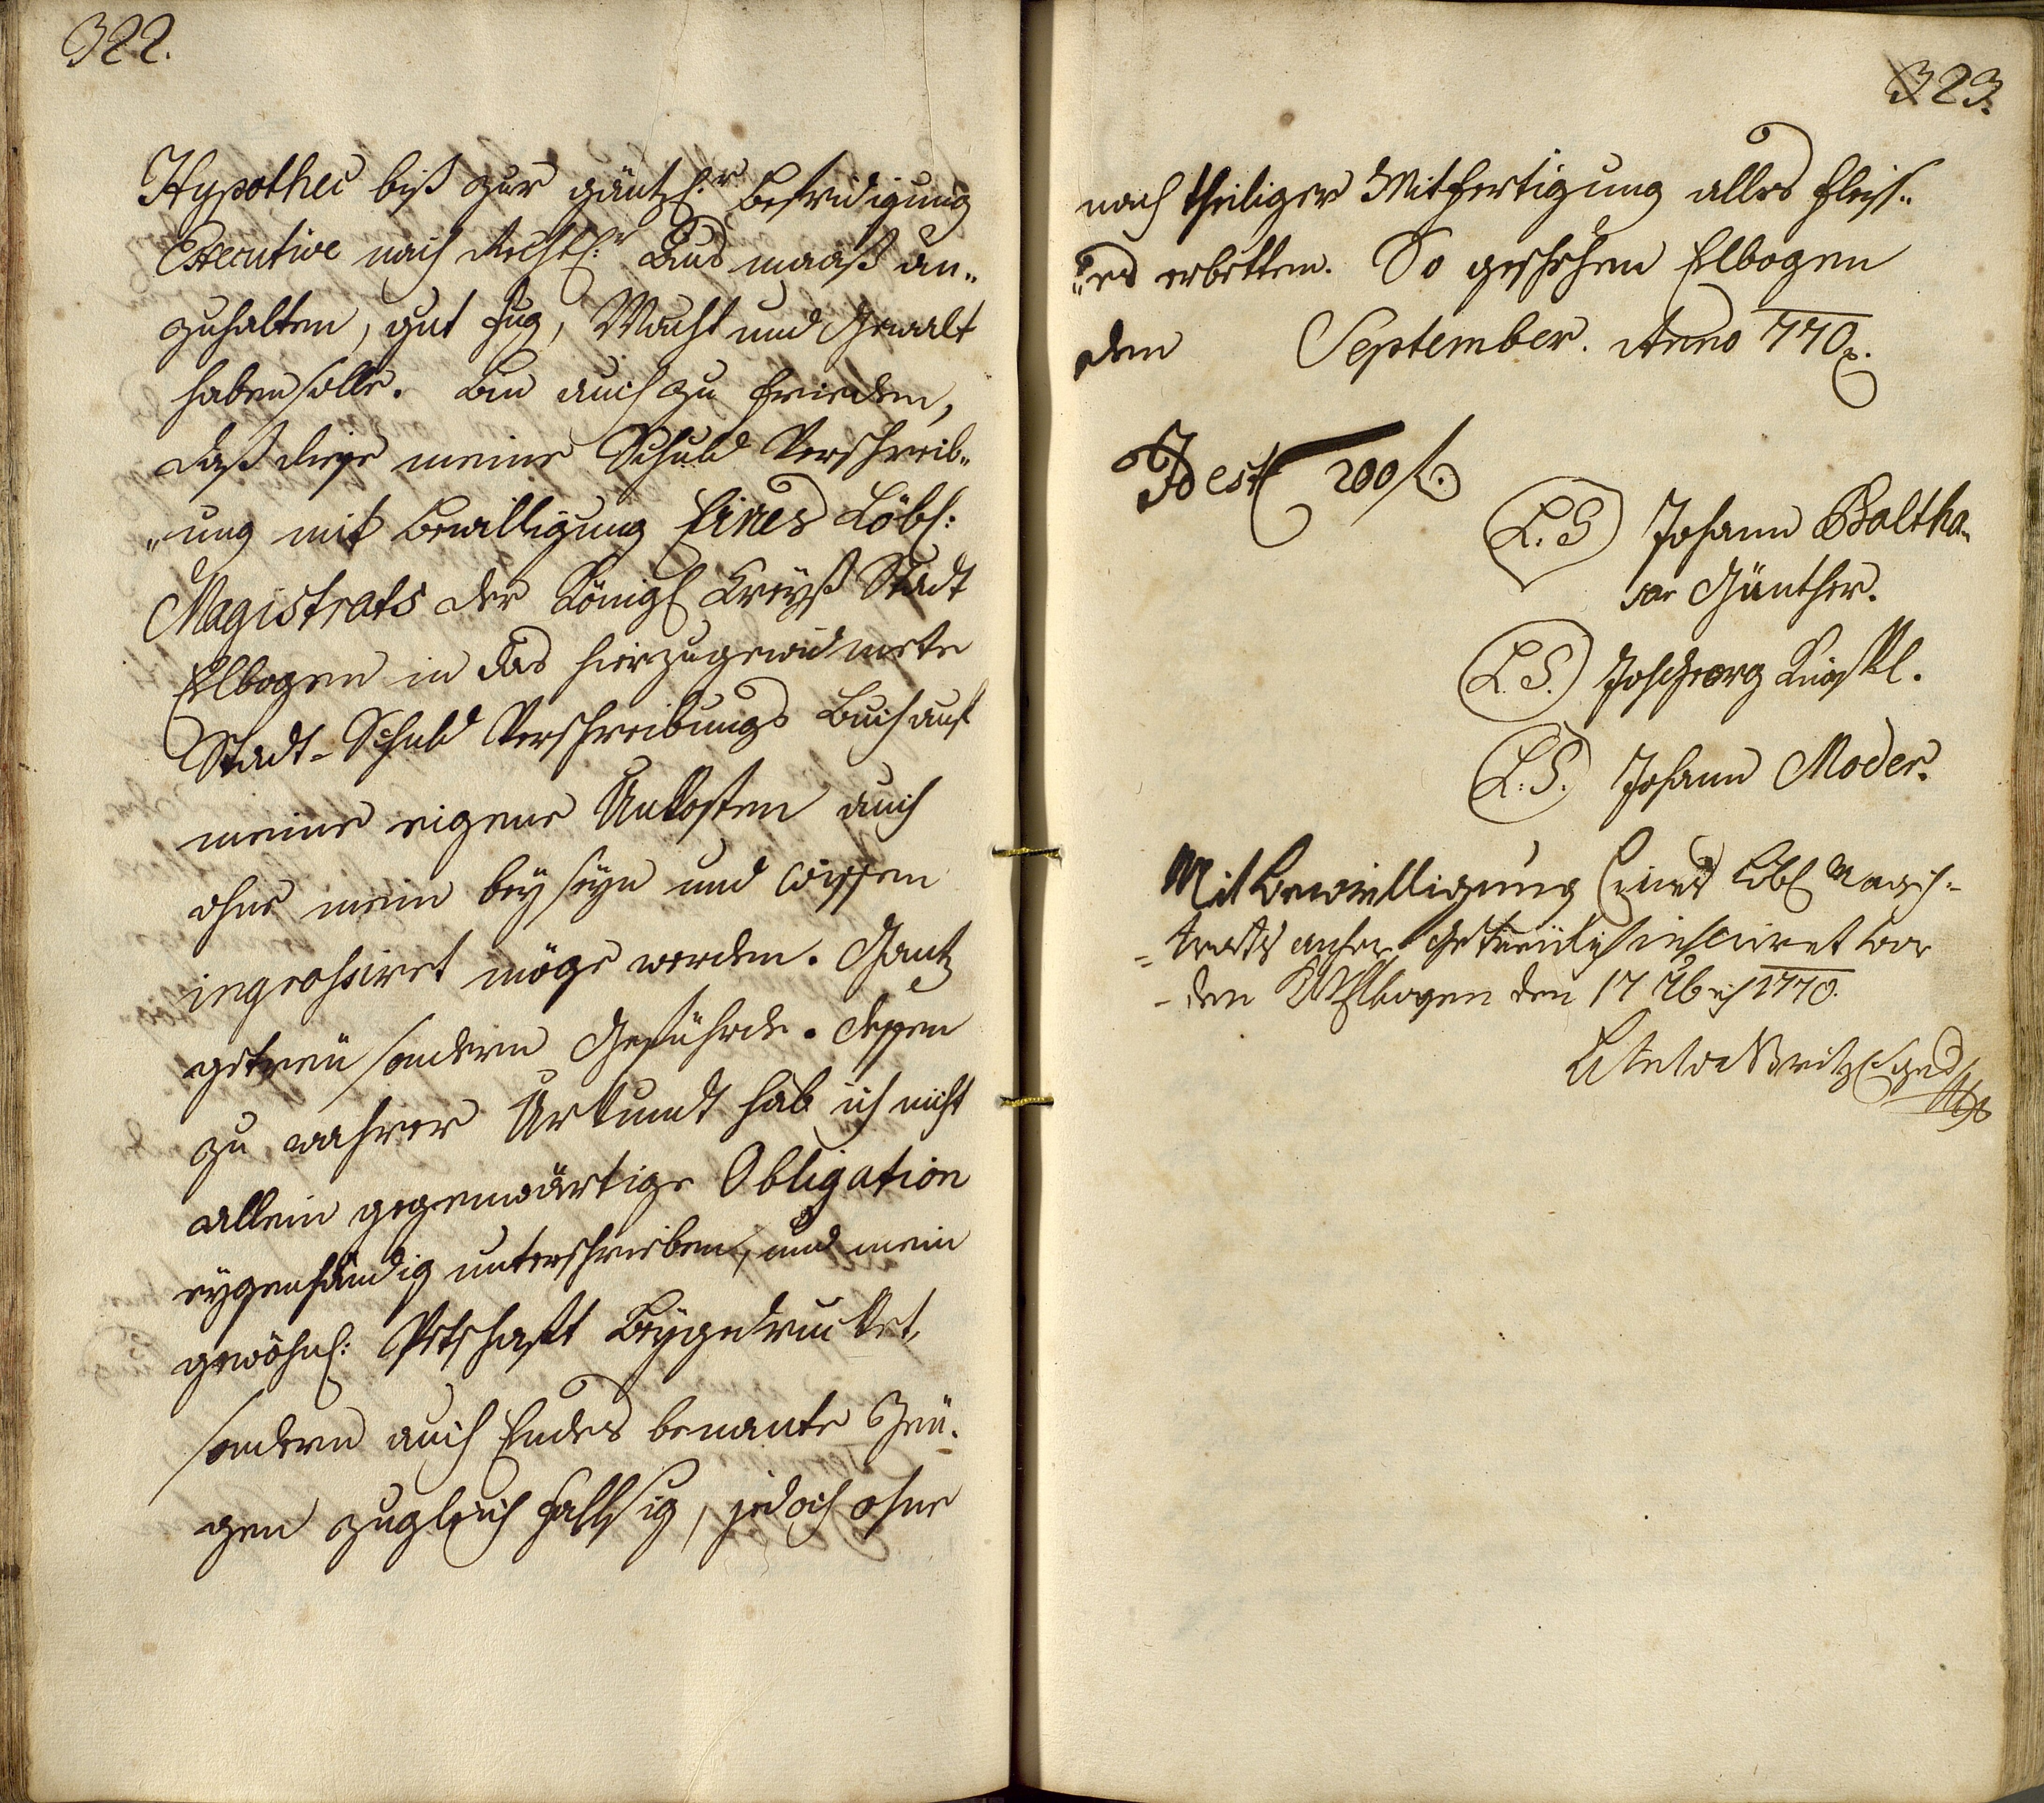 322.
Hypothec biß zur gäntzl:r befridigung
Executive nach Rechtl:r Aus maaß an„
zuhalten, gut fug, Macht und Gewalt
haben solle. bin auch zu frieden,
daß diese meine Schuld Verschreib„
„ung mit bewilligung Eines Löbl:
Magistrats der Königl Kreyß Stadt
Elbogen in das hierzugewidmete
Stadt-Schuld Verschreibungs buch auf
meine eigene Unkosten auch
ohne mein beyseyn und wissen
ingrossiret möge werden. Gantz
getreu sondern Geführde. dessen
zu wahrer Urkundt hab ich nicht
allein gegenwärtige Obligation
eygenhändig unterschrieben, und mein
gewöhnl: Pettschafft beygedrucket,
sondern auch Endes benante Zeu-
gen zugleich fallsig, jedoch ohne
323.
nach theiliger Mitfertigung alles fleiss„
„es erbetten. So geschehen Elbogen
den September. Anno 770
Id est 200 f.
L. S Johann Baltha„
sar Günther.
L. S. Joh Georg
L. S. Johann Moder.
Mit bewilligung Eines Löbl Magis=
=trats anhero Getreülich inseriret wor
-den Elbogen den 17 7bris 1770.